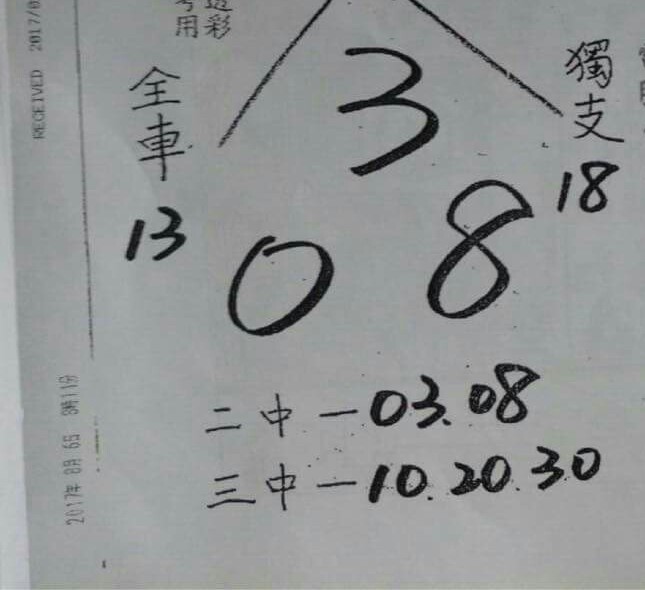 用彩
RECEIVED 2017/0
全車
獨支
3
13
18
0 8
二中一03.08
三中一10.20.30
2017年 8月 6日 8時11分